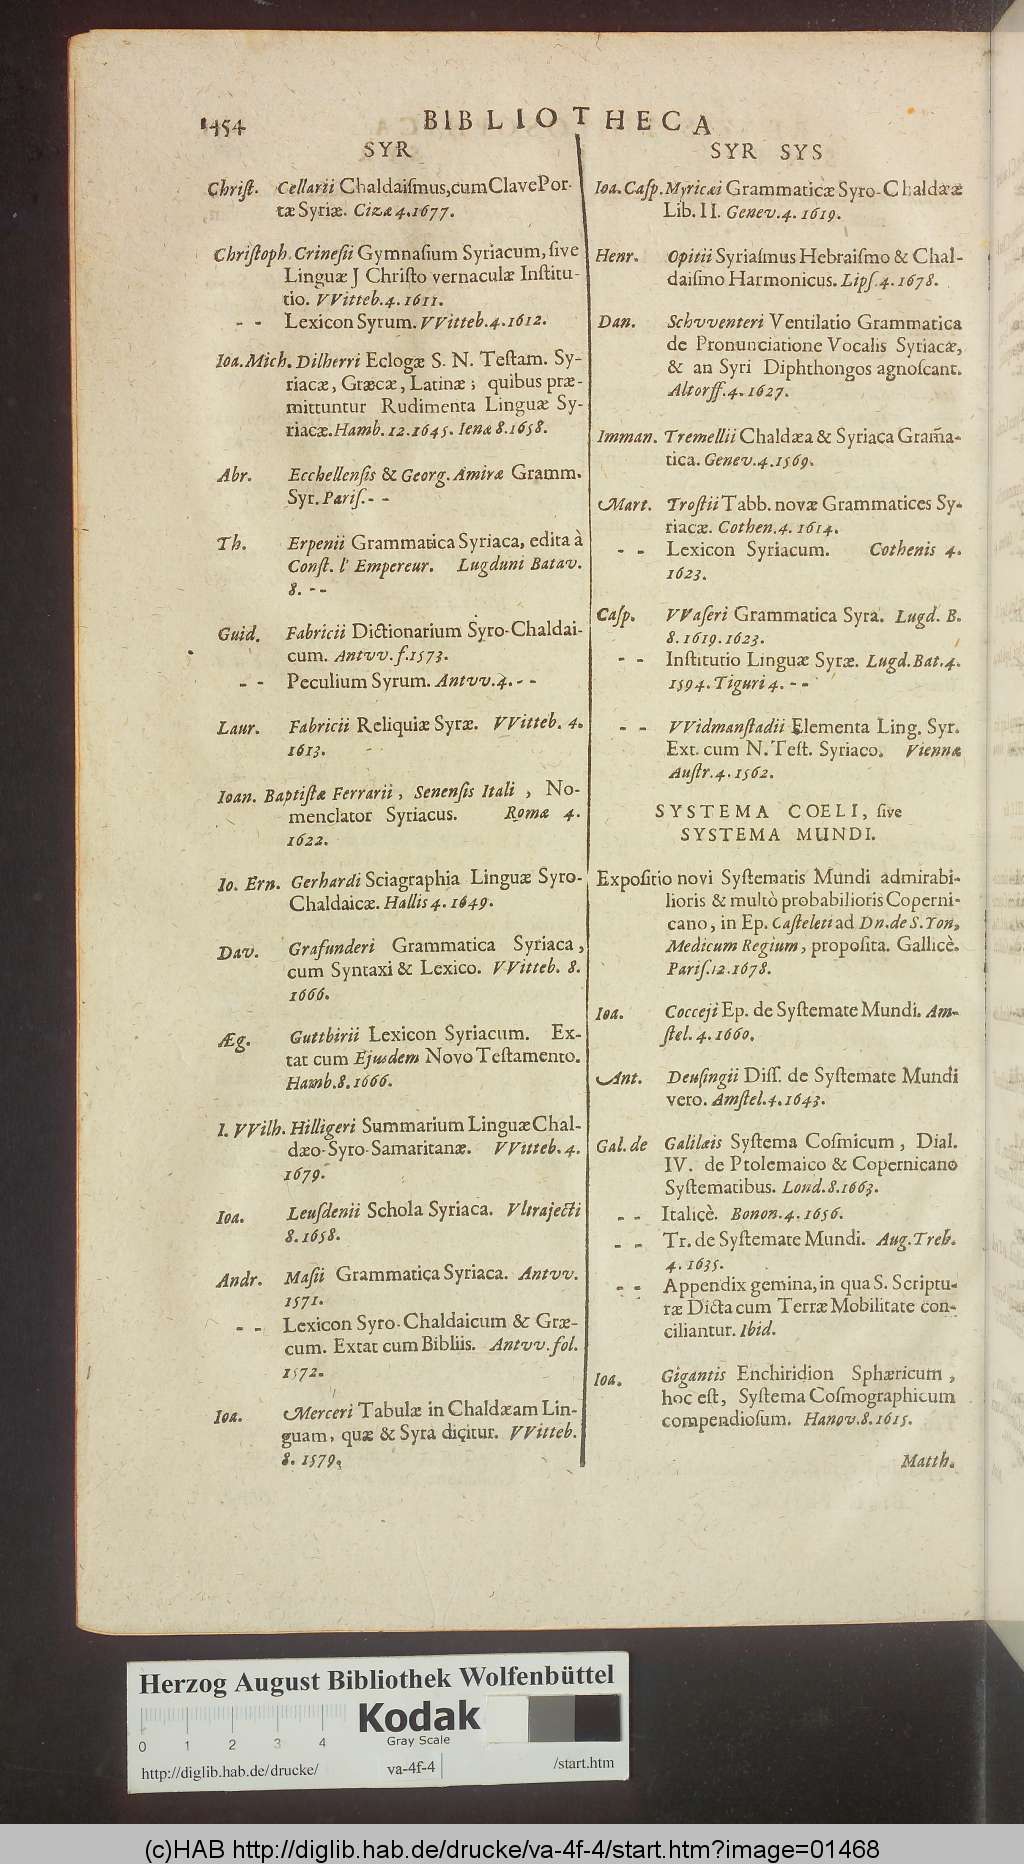 1454
BIBLIOTHECA
SYR
Chriſt. Cellarii Chaldaiſmus, cum Clave Por-
tæ Syriæ. Cizæ 4. 1677.
Chriſtoph. Crineſii Gymnaſium Syriacum, ſive
Linguæ J Chriſto vernaculæ Inſtitu-
tio. VVitteb. 4. 1611.
- - Lexicon Syrum. VVitteb. 4. 1612.
Ioa. Mich. Dilherri Eclogæ S. N. Teſtam. Sy-
riacæ, Græcæ, Latinæ; quibus præ-
mittuntur Rudimenta Linguæ Sy-
riacæ. Hamb. 12. 1645. Ienæ 8. 1658.
Abr. Ecchellenſis & Georg. Amiræ Gramm.
Syr. Pariſ. - -
Th. Erpenii Grammatica Syriaca, edita à
Conſt. l' Empereur. Lugduni Batav.
8. - -
Guid. Fabricii Dictionarium Syro-Chaldai-
cum. Antvv. f. 1573.
- - Peculium Syrum. Antvv. 4. - -
Laur. Fabricii Reliquiæ Syræ. VVitteb. 4.
1613.
Ioan. Baptiſtæ Ferrarii, Senenſis Itali, No-
menclator Syriacus. Romæ 4.
1622.
Io. Ern. Gerhardi Sciagraphia Linguæ Syro-
Chaldaicæ. Hallis 4. 1649.
Dav. Grafunderi Grammatica Syriaca,
cum Syntaxi & Lexico. VVitteb. 8.
1666.
Æg. Guttbirii Lexicon Syriacum. Ex-
tat cum Ejusdem Novo Teſtamento.
Hamb. 8. 1666.
I. VVilh. Hilligeri Summarium Linguæ Chal-
dæo-Syro-Samaritanæ. VVitteb. 4.
1679.
Ioa. Leuſdenii Schola Syriaca. Vltrajecti
8. 1658.
Andr. Maſii Grammatica Syriaca. Antvv.
1571.
- - Lexicon Syro-Chaldaicum & Græ-
cum. Extat cum Bibliis. Antvv. fol.
1572.
Ioa. Merceri Tabulæ in Chaldæam Lin-
guam, quæ & Syra dicitur. VVitteb.
8. 1579.
SYR SYS
Ioa. Caſp. Myricæi Grammaticæ Syro-Chaldææ
Lib. II. Genev. 4. 1619.
Henr. Opitii Syriaſmus Hebraiſmo & Chal-
daiſmo Harmonicus. Lipſ. 4. 1678.
Dan. Schvventeri Ventilatio Grammatica
de Pronunciatione Vocalis Syriacæ,
& an Syri Diphthongos agnoſcant.
Altorff. 4. 1627.
Imman. Tremellii Chaldæa & Syriaca Gram̃a-
tica. Genev. 4. 1569.
Mart. Troſtii Tabb. novæ Grammatices Sy-
riacæ. Cothen. 4. 1614.
- - Lexicon Syriacum. Cothenis 4.
1623.
Caſp. VVaſeri Grammatica Syra. Lugd. B.
8. 1619. 1623.
- - Inſtitutio Linguæ Syræ. Lugd. Bat. 4.
1594. Tiguri 4. - -
- - VVidmanſtadii Elementa Ling. Syr.
Ext. cum N. Teſt. Syriaco. Viennæ
Auſtr. 4. 1562.
SYSTEMA COELI, ſive
SYSTEMA MUNDI.
Expoſitio novi Syſtematis Mundi admirabi-
lioris & multò probabilioris Coperni-
cano, in Ep. Caſteleti ad Dn. de S. Yon,
Medicum Regium, propoſita. Gallicè.
Pariſ. 12. 1678.
Ioa. Cocceji Ep. de Syſtemate Mundi. Am-
ſtel. 4. 1660.
Ant. Deuſingii Diſſ. de Syſtemate Mundi
vero. Amſtel. 4. 1643.
Gal. de Galilæis Syſtema Coſmicum, Dial.
IV. de Ptolemaico & Copernicano
Syſtematibus. Lond. 8. 1663.
- - Italicè. Bonon. 4. 1656.
- - Tr. de Syſtemate Mundi. Aug. Treb.
4. 1635.
- - Appendix gemina, in qua S. Scriptu-
ræ Dicta cum Terræ Mobilitate con-
ciliantur. Ibid.
Ioa. Gigantis Enchiridion Sphæricum,
hoc eſt, Syſtema Coſmographicum
compendioſum. Hanov. 8. 1615.
Matth.
Herzog August Bibliothek Wolfenbüttel
Kodak
Gray Scale
0 1 2 3 4
http://diglib.hab.de/drucke/ va-4f-4 /start.htm
(c)HAB http://diglib.hab.de/drucke/va-4f-4/start.htm?image=01468